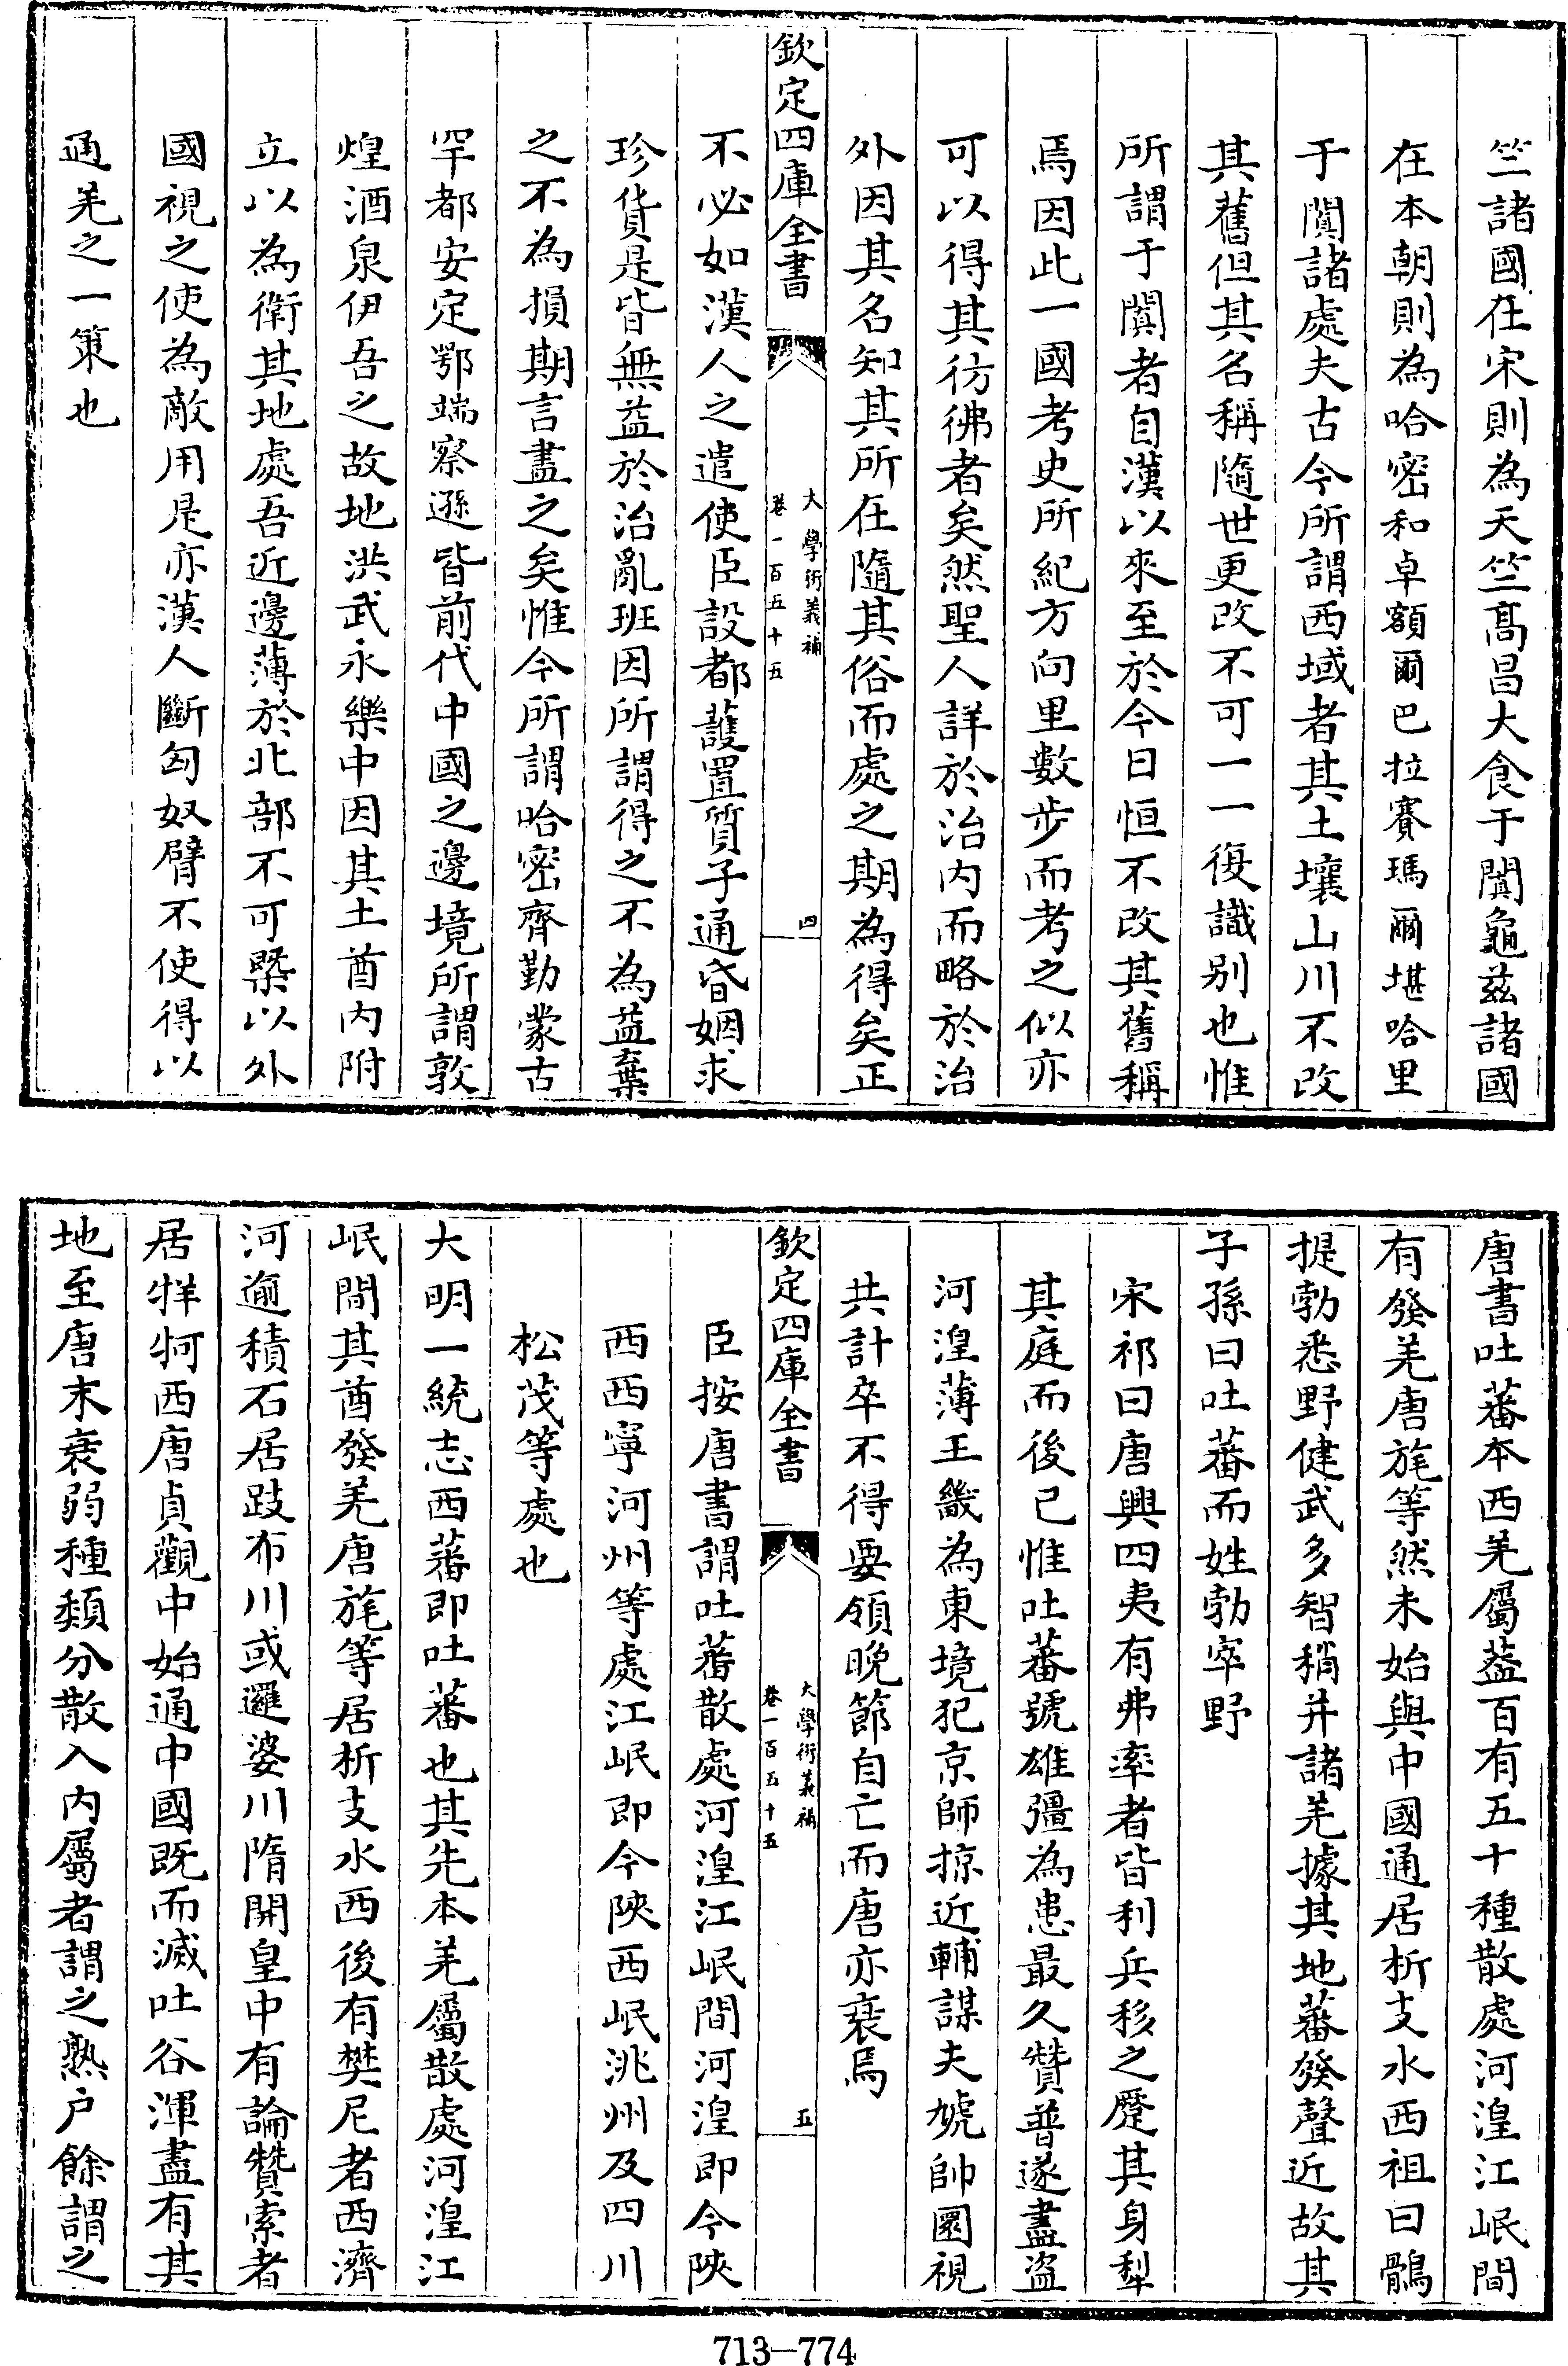 竺諸國在宋則為天竺高昌大食于闐龜兹諸國
在本朝則為哈密和卓額爾巴拉賽瑪爾堪哈里
于闐諸處夫古今所謂西域者其土壤山川不改
其舊但其名稱隨世更改不可一一復識别也惟
所謂于闐者自漢以來至於今日恒不改其舊稱
焉因此一國考史所紀方向里數步而考之似亦
可以得其彷彿者矣然聖人詳於治内而略於治
外因其名知其所在隨其俗而處之期為得矣正
欽定四庫全書
大學衍義補
卷一百五十五
四
不必如漢人之遣使臣設都䕶置質子通昏姻求
珍貨是皆無益於治亂班固所謂得之不為益棄
之不為損期言盡之矣惟今所謂哈密齊勤蒙古
罕都安定鄂端察遜皆前代中國之邊境所謂敦
煌酒泉伊吾之故地洪武永樂中因其土酋内附
立以為衛其地處吾近邊薄於北部不可槩以外
國視之使為敵用是亦漢人斷匈奴臂不使得以
通羌之一策也
唐書吐蕃本西羌屬葢百有五十種散處河湟江岷間
有發羌唐旄等然未始與中國通居析支水西祖曰鶻
提勃悉野健武多智稍并諸羌據其地蕃發聲近故其
子孫曰吐蕃而姓勃窣野
宋祁曰唐興四夷有弗率者皆利兵移之蹙其身犁
其庭而後已惟吐蕃號雄彊為患最久贊普遂盡盜
河湟薄王畿為東境犯京師掠近輔謀夫虓帥圜視
共計卒不得要領晚節自亡而唐亦衰焉
欽定四庫全書
大學衍義補
卷一百五十五
五
臣按唐書謂吐蕃散處河湟江岷間河湟即今陝
西西寧河州等處江岷即今陝西岷洮州及四川
松茂等處也
大明一統志西蕃即吐蕃也其先本羌屬散處河湟江
岷間其酋發羌唐旄等居析支水西後有樊尼者西濟
河逾積石居跂布川或邏婆川隋開皇中有論贊索者
居牂牁西唐貞觀中始通中國既而滅吐谷渾盡有其
地至唐末衰弱種類分散入内屬者謂之熟户餘謂之
713—774